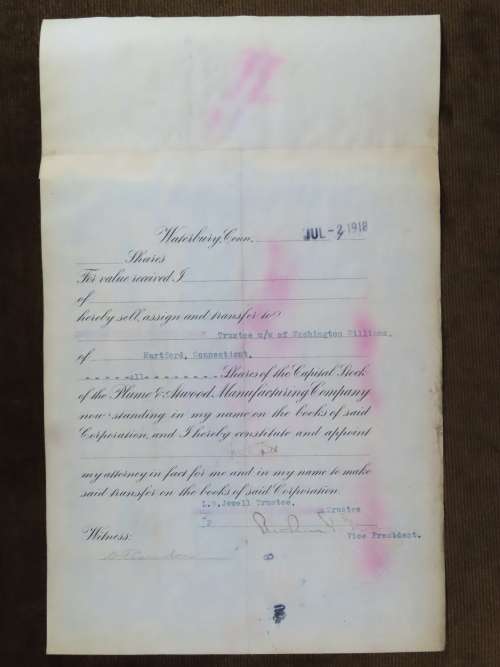 Waterbury, Conn. JUL -2 1918
Shares
For value received I
of
hereby sell, assign and transfer to
Trustee u/w of Washington
of Hartford, Connecticut.
- - - - -all- - - - - - - - Shares of the Capital Stock
of the Plume & Atwood Manufacturing Company
now standing in my name on the books of said
Corporation, and I hereby constitute and appoint
my attorney in fact for me and in my name to make
said transfer on the books of said Corporation.
Jewell Trustee.
Trustee
Witness:
Vice President.